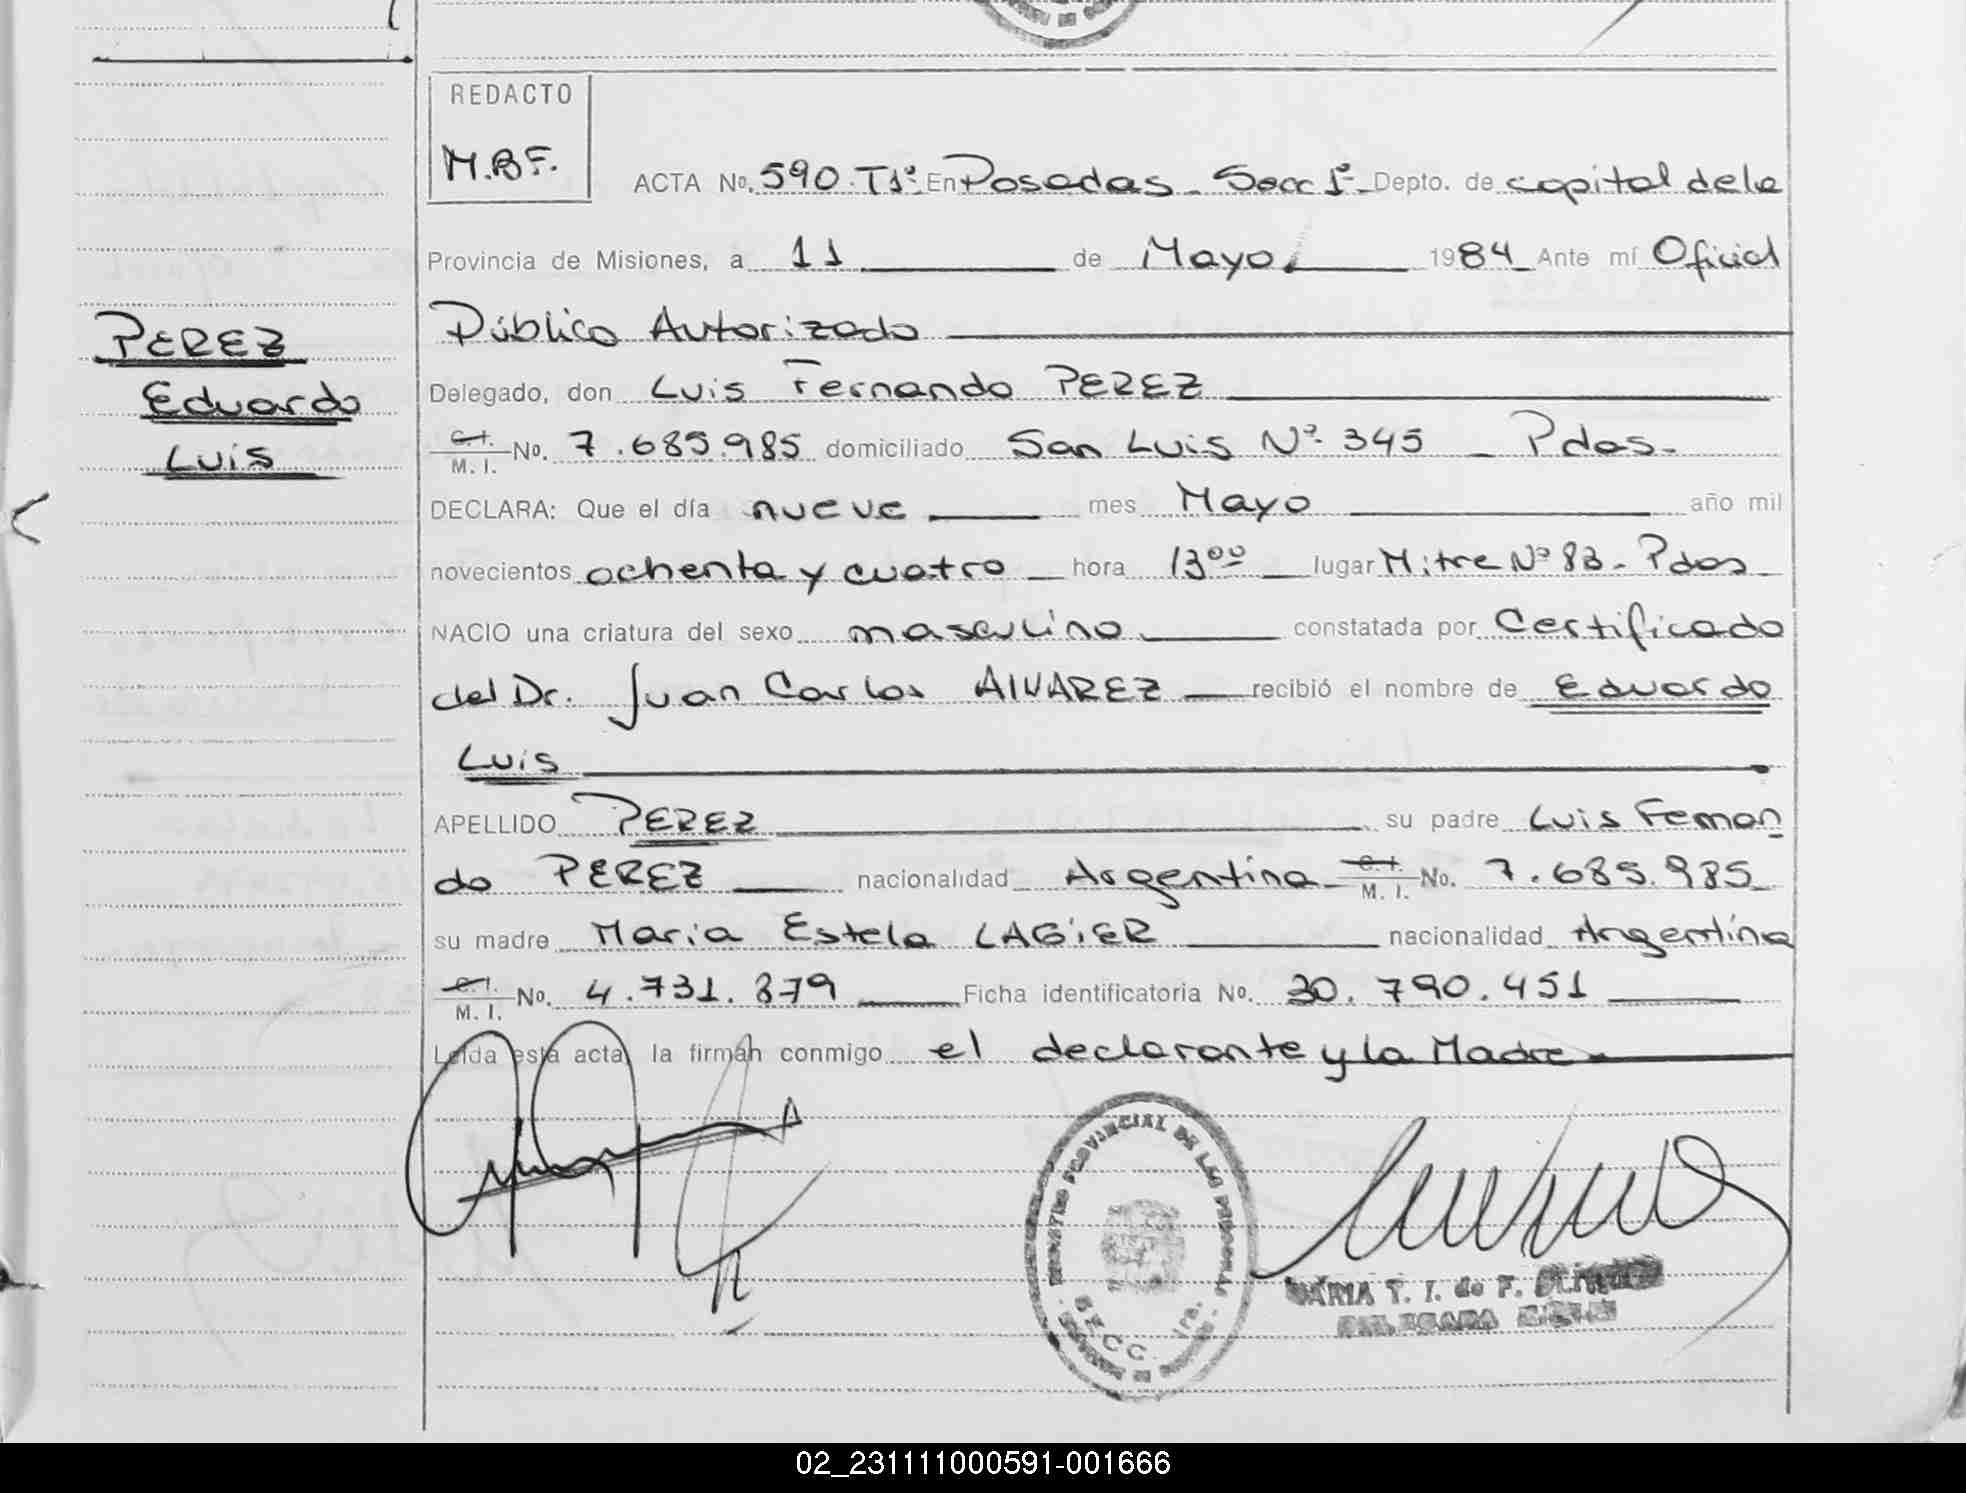 REDACTO
M.B.F.
ACTA No. 590. T1º En Posadas - Secc 1º - Depto. de capital de la
Provincia de Misiones, a 11 de Mayo 1984 Ante mí Oficial
Público Autorizado
PEREZ
Eduardo
Luis
Delegado, don Luis Fernando PEREZ
C. I. M. I. No. 7.685.985 domiciliado San Luis Nº 345 - Pdas.
DECLARA: Que el día nueve mes Mayo año mil
novecientos ochenta y cuatro hora 13ºº lugar Mitre Nº 83 - Pdas
NACIO una criatura del sexo masculino constatada por Certificado
del Dr. Juan Carlos ALVAREZ recibió el nombre de Eduardo
Luis
APELLIDO PEREZ su padre Luis Fernan
do PEREZ nacionalidad Argentina C. I. M. I. No. 7.685.985
su madre Maria Estela LAGIER nacionalidad Argentina
C. I. M. I. No. 4.731.379 Ficha identificatoria No. 30.790.451
Leída esta acta, la firman conmigo el declarante y la Madre
REGISTRO PROVINCIAL DE LAS PERSONAS
SECC. 1ra.
MARIA T. I. de F.
02_231111000591-001666